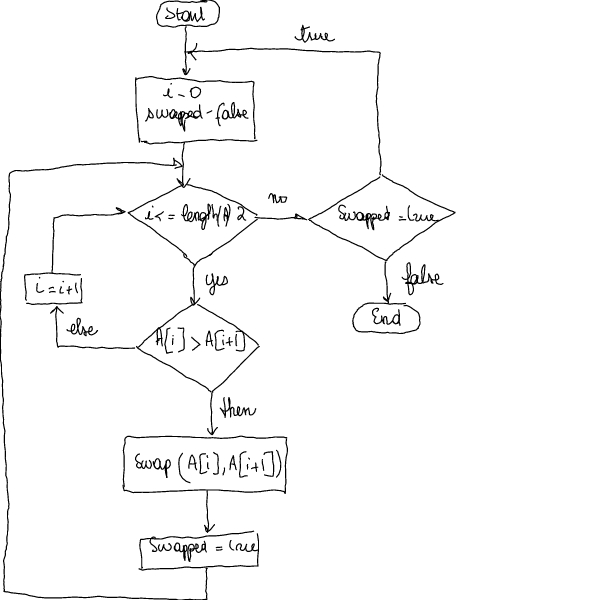 Start
true
i-0
swapped-false
i<= length(A) 2
no
Swapped = true
yes
false
i=i+1
End
else
A[i] > A[i+1]
then
Swap (A[i], A[i+1])
Swapped = true